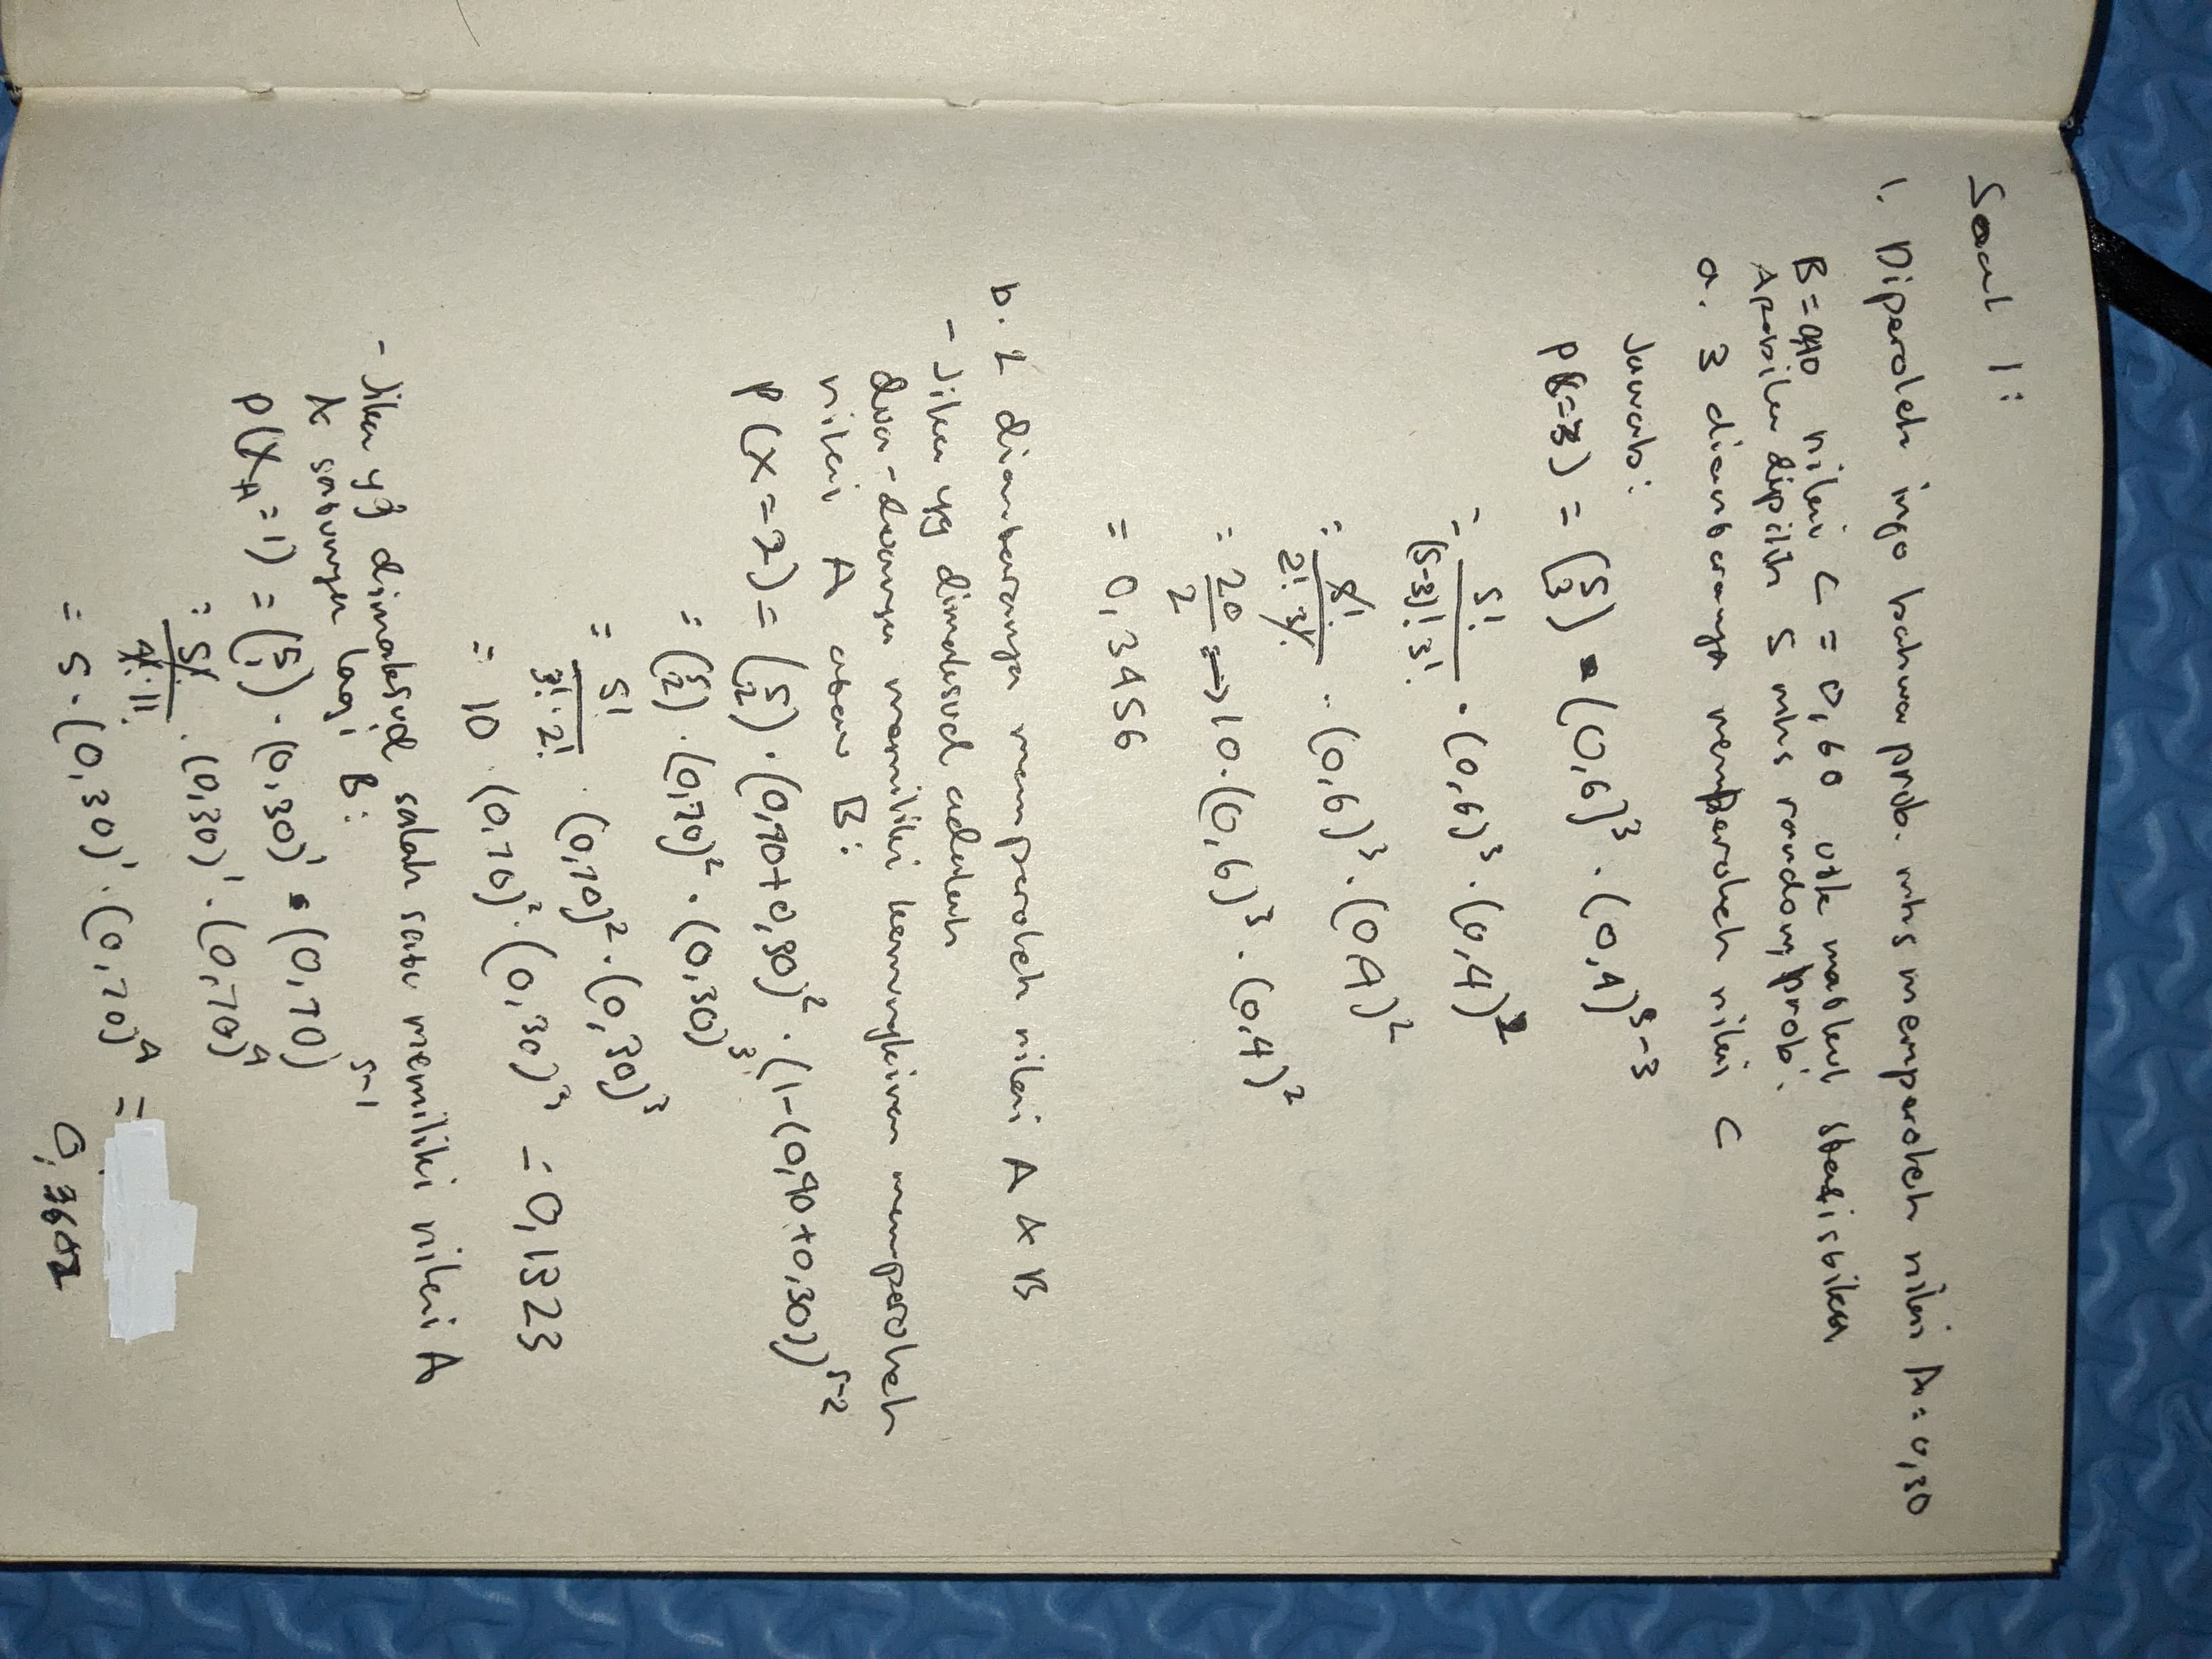 Soal 1:
1. Diperoleh info bahwa prob. mhs memperoleh nilai A = 0,30
B = 0,40 nilai C = 0,60 utk matkul statistika
Apabila dipilih 5 mhs random, prob.
a. 3 diantaranya memperoleh nilai C
Jawab:
P(C=3) = (5 3) • (0,6)³ · (0,4)⁵⁻³
= 5! / (5-3)! 3! · (0,6)³ · (0,4)²
= 5! / 2! 3! · (0,6)³ · (0,4)²
= 20 / 2 => 10 · (0,6)³ · (0,4)²
= 0,3456
b. 2 diantaranya memperoleh nilai A & B
- Jika yg dimaksud adalah
dua-duanya memiliki kemungkinan memperoleh
nilai A atau B:
P(X=2) = (5 2) · (0,40+0,30)² · (1-(0,40+0,30))⁵⁻²
= (5 2) · (0,70)² · (0,30)³
= 5! / 3! · 2! · (0,70)² · (0,30)³
= 10 · (0,70)² · (0,30)³ = 0,1323
- Jika yg dimaksud salah satu memiliki nilai A
& satunya lagi B:
P(X_A = 1) = (5 1) · (0,30)¹ • (0,70)⁵⁻¹
= 5! / 4! · 1! · (0,30)¹ · (0,70)⁴
= 5 · (0,30)¹ · (0,70)⁴ =